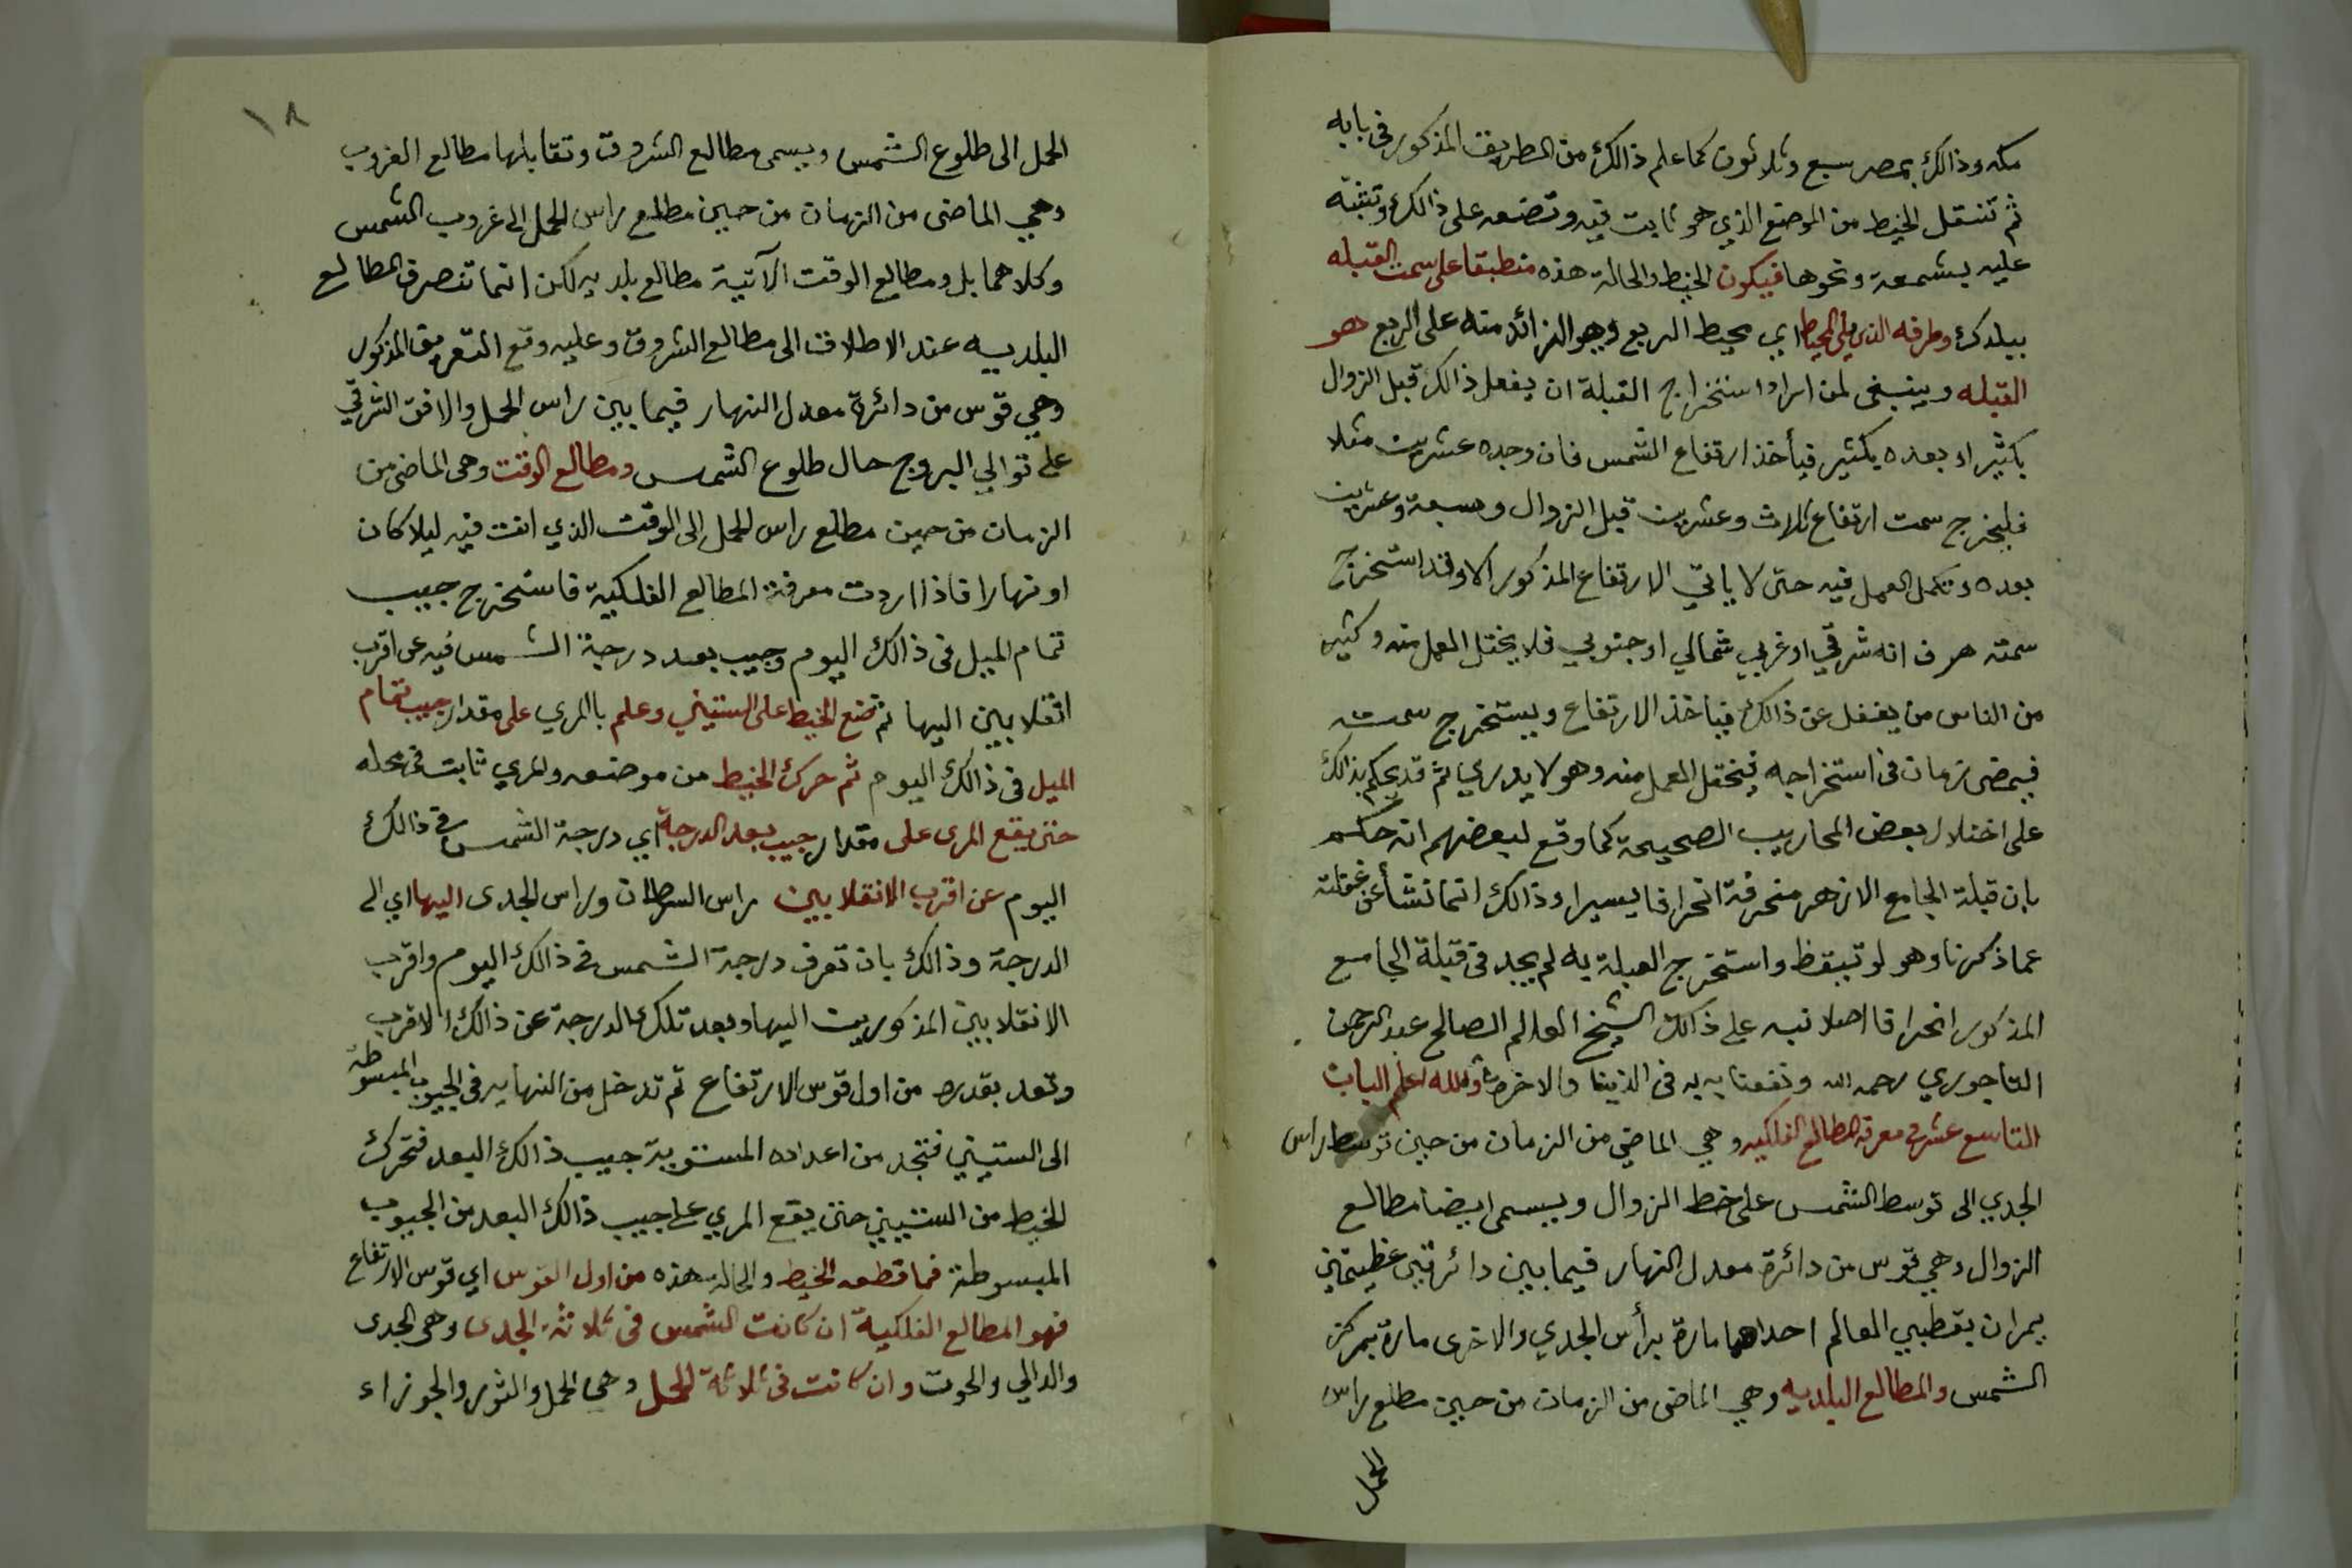 مكه وذالك بمصر سبع وثلاثون كما علم ذالك من الطريق المذكور فى بابه
ثم تنقل الخيط من الموضع الذي هو ثابت فيه وتضعه على ذالك وتثبته
عليه بشمعة ونحوها فيكون الخيط والحالة هذه منطبقا على سمت القبله
ببلدك وطرفه الذي يلي المحيط اي محيط الربع وهو الزائد منه على الربع هو
القبله وينبغى لمن اراد استخراج القبلة ان يفعل ذالك قبل الزوال
بكثير او بعده بكثير فيأخذ ارتفاع الشمس فان وجده عشرين مثلا
فليخرج سمت ارتفاع ثلاث وعشرين قبل الزوال وسبعة وعشرين
بعده وتكمل العمل فيه حتى لا ياتي الارتفاع المذكور الا وقد استخرج
سمته هرف انه شرقي او غربي شمالي او جنوبي فلا يختل العمل منه وكثير
من الناس من يغفل عن ذالك فيأخذ الارتفاع ويستخرج سمته
فيمضى زمان فى استخراجه فيختل العمل منه وهو لا يدري ثم قد يحكم بذالك
على اختلال بعض المحاريب الصحيحة كما وقع لبعضهم انه حكم
بان قبلة الجامع الازهر منحرفة انحرافا يسيرا وذالك انما نشأ عن غفلته
عما ذكرنا وهو لو تيقظ واستخرج القبلة به لم يجد فى قبلة الجامع
المذكور انحرافا اصلا نبه على ذالك الشيخ العالم الصالح عبد الرحمن
التاجوري رحمه الله ونفعنا به به فى الدنيا والاخرة والله اعلم الباب
التاسع عشر فى معرفة المطالع الفلكيه وهي الماضي من الزمان من حين توسط راس
الجدي الى توسط الشمس على خط الزوال ويسمى ايضا مطالع
الزوال وهي قوس من دائرة معدل النهار فيما بين دائرتين عظيمتين
يمران بقطبي العالم احداهما مارة برأس الجدي والاخرى مارة بمركز
الشمس والمطالع البلديه وهي الماضى من الزمان من حين مطلع راس
الحمل
١٨
الحمل الى طلوع الشمس ويسمى مطالع الشروق وتقابلها مطالع الغروب
وهي الماضى من الزمان من حين مطلع راس الحمل الى غروب الشمس
وكلاهما بل ومطالع الوقت الآتية مطالع بلديه لكن انما تنصرف المطالع
البلديه عند الاطلاق الى مطالع الشروق وعليه وقع التعريف المذكور
وهي قوس من دائرة معدل النهار فيما بين راس الحمل والافق الشرقي
على توالي البروج حال طلوع الشمس ومطالع الوقت وهى الماضى من
الزمان من حين مطلع راس الحمل الى الوقت الذي انت فيه ليلا كان
او نهارا فاذا اردت معرفة المطالع الفلكية فاستخرج جيب
تمام الميل فى ذالك اليوم وجيب بعد درجة الشمس فيه عن اقرب
انقلابين اليها ثم تضع الخيط على الستيني وعلم بالمري على مقدار جيب تمام
الميل فى ذالك اليوم ثم حرك الخيط من موضعه والمري ثابت فى محله
حتى يقع المرى على مقدار جيب بعد الدرجة اي درجة الشمس فى ذالك
اليوم عن اقرب الانقلابين راس السرطان وراس الجدى اليها اي الى
الدرجة وذالك بان تعرف درجة الشمس فى ذالك اليوم واقرب
الانقلابين المذكورين اليها وبعد تلك الدرجة عن ذالك الاقرب
وتعد بقدره من اول قوس الارتفاع ثم تدخل من النهايه فى الجيوب المبسوطة
الى الستيني فتجد من اعداده المستوية جيب ذالك البعد فتحرك
الخيط من الستيني حتى يقع المري على جيب ذالك البعد من الجيوب
المبسوطة فما قطعه الخيط والحالة هذه من اول القوس اي قوس الارتفاع
فهو المطالع الفلكية ان كانت الشمس فى ثلاثة الجدى وهى الجدى
والدالي والحوت وان كانت فى ثلاثة الحمل وهى الحمل والثور والجوزاء